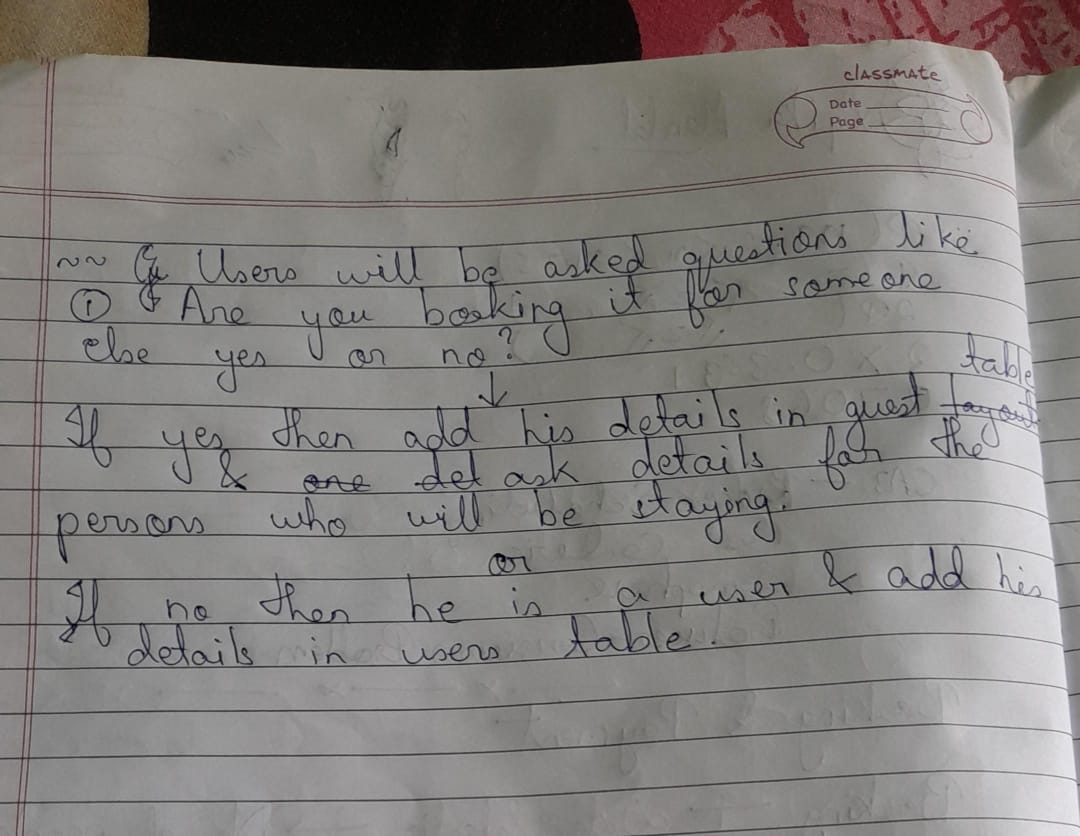 classmate
Date
Page
~~ Users will be asked questions like
① Are you booking it for someone
else yes or no?
↓
If yes then add his details in guest layout table
& one det ask details for the
persons who will be staying.
or
If no then he is a user & add his
details in users table.